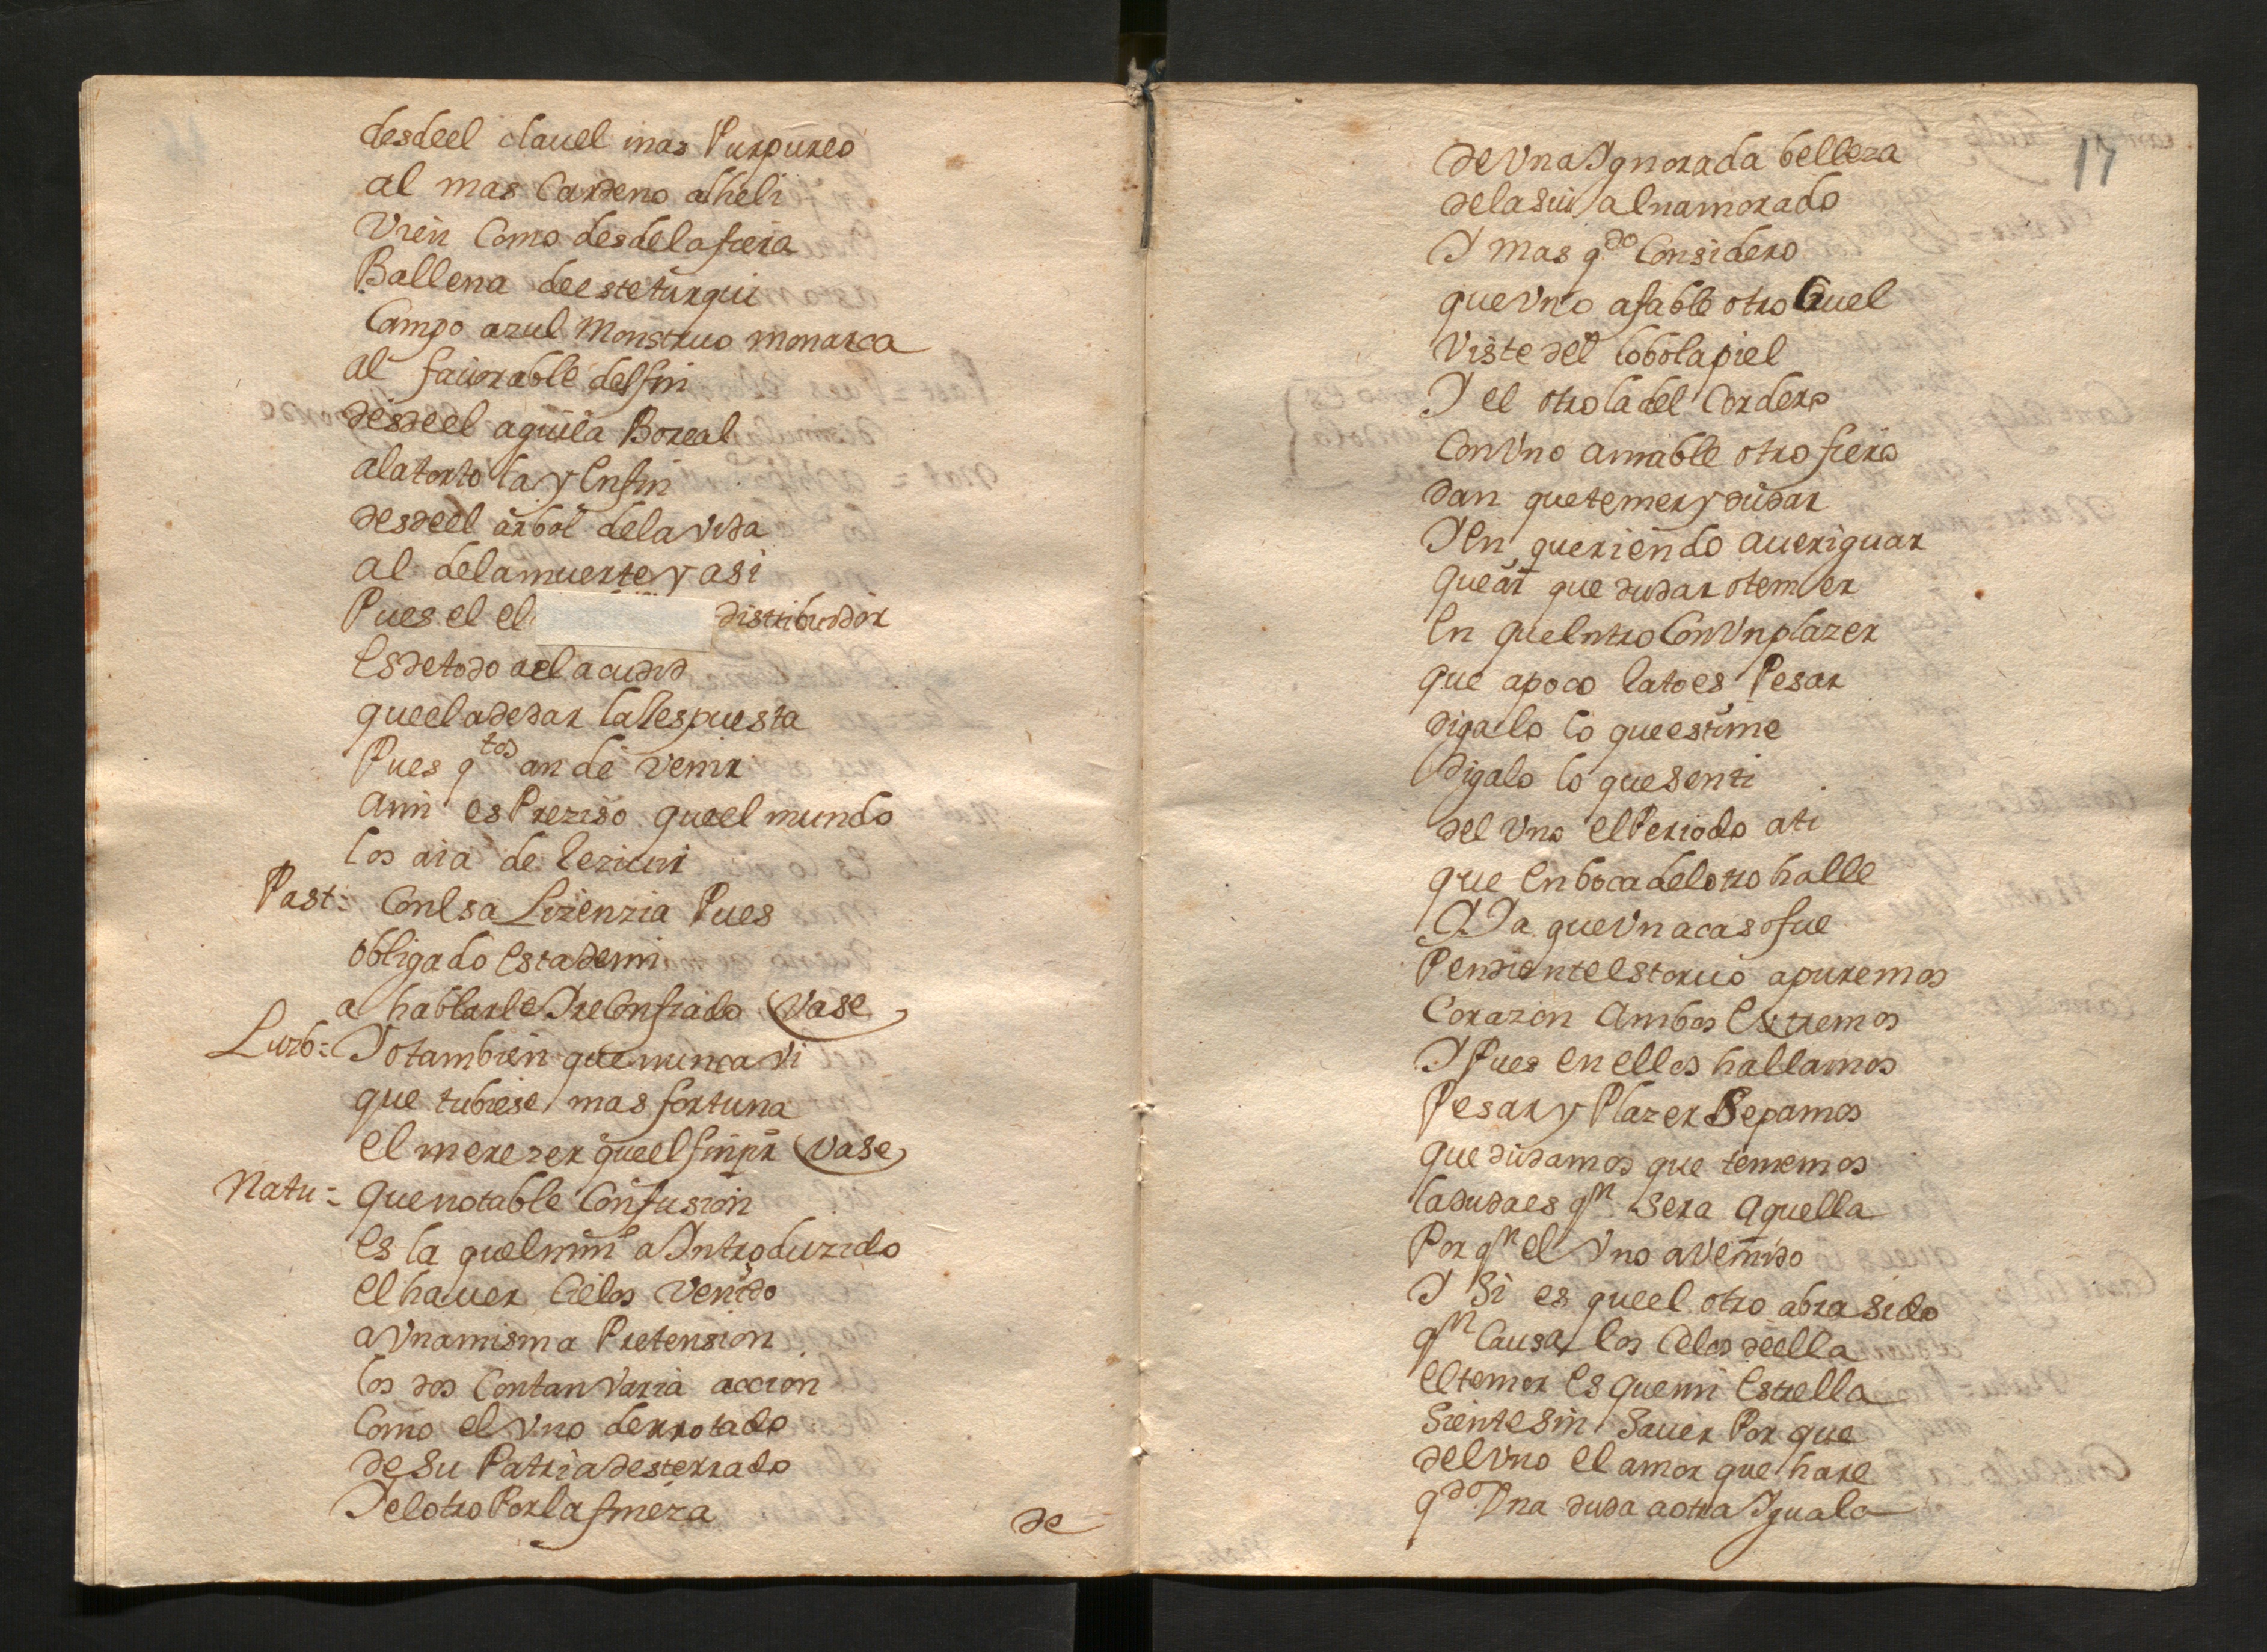 desdeel clauel mas Purpureo
al mas Cardeno alheli
Vien Como desdelafiera
Ballena deesteturqui
Campo azul Monstruo monarca
al fauorable delfin
desdeel aguila Boreal
alatortola y Enfin
desdeel arbol dela vida
al delamuerte y asi
Pues el el distribuidor
Esdetodo ael acudid
queel adedar laRespuesta
Pues q^tos an de venir
Aun es Preziso queel mundo
los aia de Reziuir
Past: Conesa Lizenzia Pues
obligado Estademi
a hablarle Ire Confiado Vase
Luzb: Yotambien que nunca vi
que tubiese mas fortuna
el merezer queel finjir Vase
Natu: quenotable Confusion
Es la queenmi a Introduzido
el hauer Cielos Venido
aVnamisma Pretension
los dos Contan Varia accion
Como el Vno derrotado
de Su Patria desterrado
Yelotro Porlafineza
de
17
deVna Ignorada belleza
delasui aEnamorado
Y mas q^do Considero
queVno afable otro Cruel
Viste del lobolapiel
Y el otro ladel Cordero
ConVno amable otro fiero
dan quetemer y dudar
Yen queriendo aueriguar
quear que dudar otemer
En queentro ConVnplazer
que apoco Rato es Pesar
digalo lo queestime
digalo lo quesenti
del Vno elPeriodo ati
que Enbocadelotro halle
YYa queVnacasofue
Pendienteestoruo apuremos
Corazon Ambos Extremos
Y Pues en ellos hallamos
Pesar y Plazer Sepamos
que dudamos que tememos
laduda es q^n Sera Aquella
Por q^n el Vno avenido
Y Si es queel otro abra sido
q^n Causa los Celos deella
eltemor Es quemi Estrella
Siente Sin Sauer Por que
delVno el amor que hare
q^do Vna duda aotra Iguala